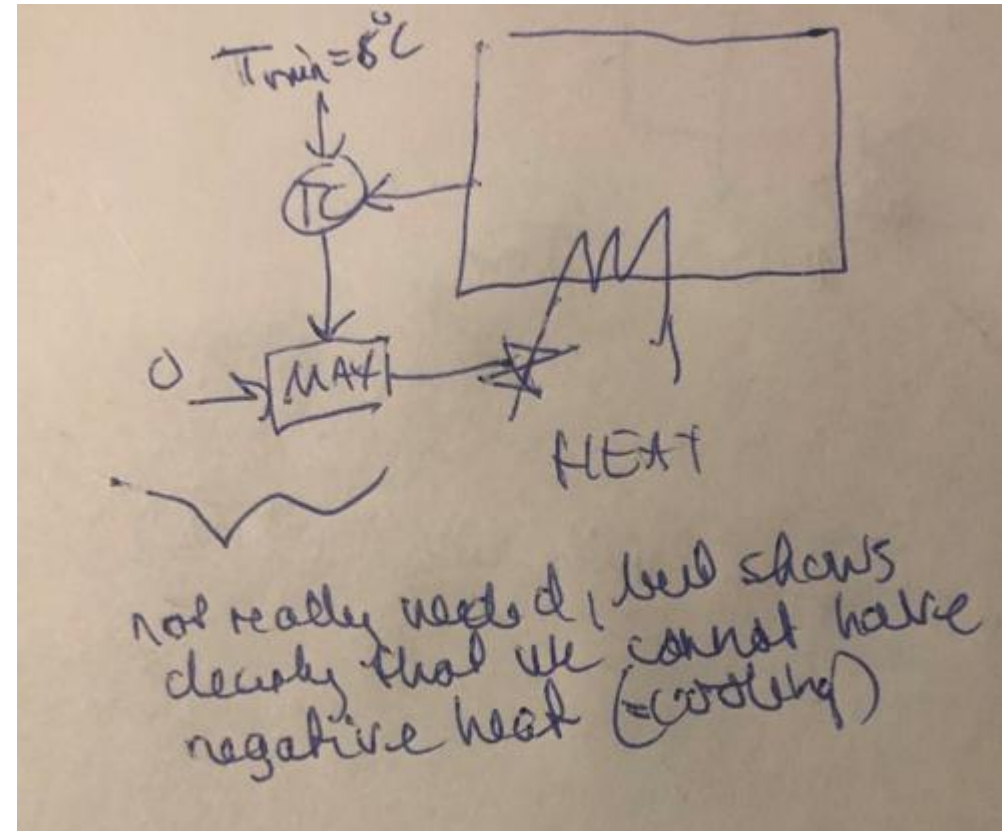 Tmin = 8°C
TC
0
MAX
HEAT
not really needed, but shows
clearly that we cannot have
negative heat (=cooling)